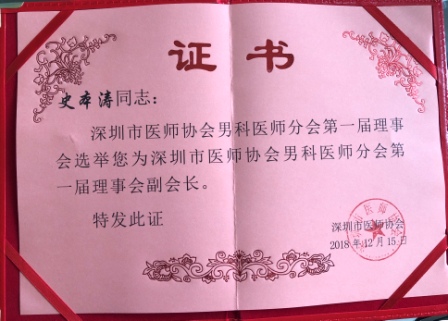 证书
史本涛同志：
深圳市医师协会男科医师分会第一届理事
会选举您为深圳市医师协会男科医师分会第
一届理事会副会长。
特发此证
深圳市医师协会
2018年12月15日